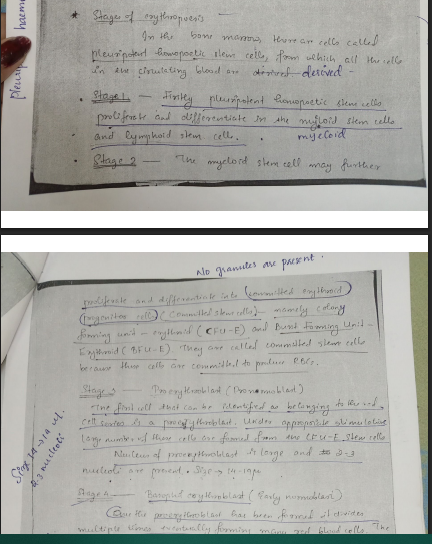 * Stages of erythropoesis —
In the bone marrow, there are cells called
pleuripotent homopoetic stem cells, from which all the cells
in the circulating blood are derived - derived -
• Stage 1 — Firstly pleuripotent homopoetic stem cells
proliferate and differentiate in the myloid stem cells
and lymphoid stem cells. myeloid
• Stage 2 — The myeloid stem cell may further
No granules are present.
proliferate and differentiate into (committed erythroid
progenitor cells) (Committed stem cells) — namely colony
forming unit - erythroid (CFU-E) and Burst forming Unit -
Erythroid (BFU-E). They are called committed stem cells
because these cells are committed to produce RBCs.
Stage 3 — Proerythroblast (Pronormoblast)
The first cell that can be identified as belonging to the red
cell series is a proerythroblast. Under appropriate stimulation
large number of these cells are formed from the CFU-E stem cells
Nucleus of proerythroblast is large and 2-3
nucleoli are present. Size → 14-19μ
Stage 4 — Basophil erythroblast (Early normoblast)
Once the proerythroblast has been formed it divides
multiple times eventually forming many red blood cells. The